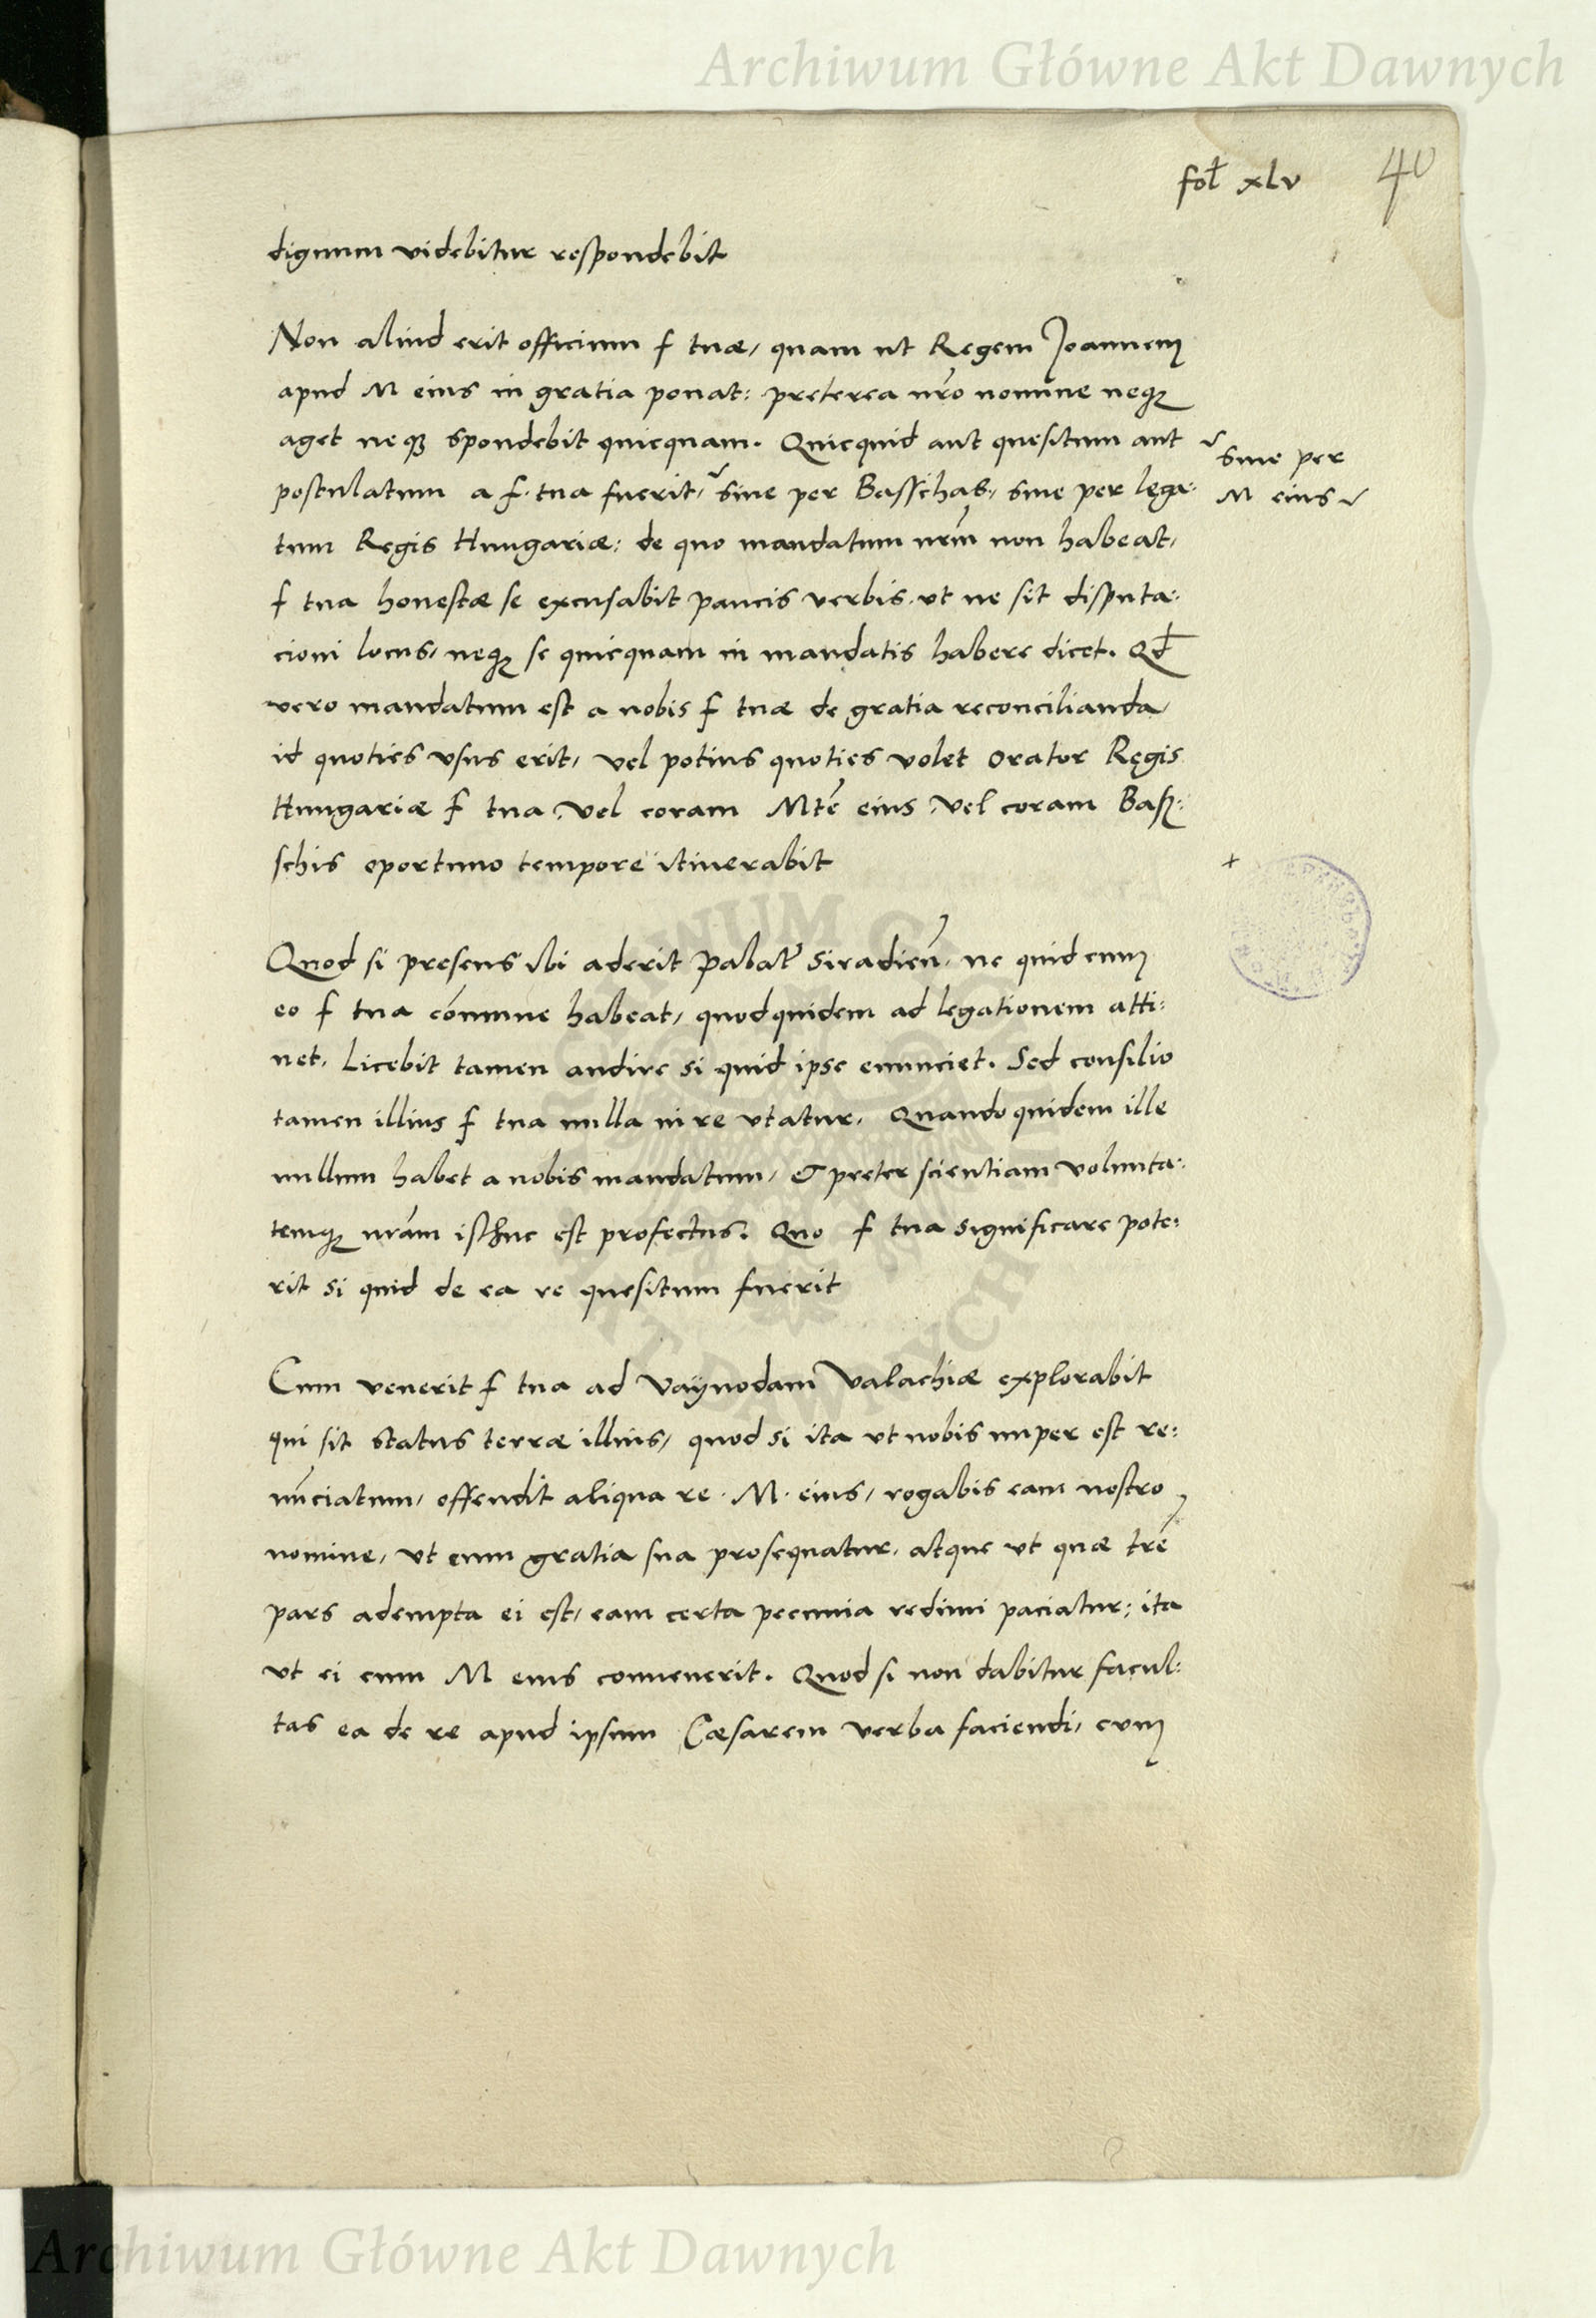 Archiwum Główne Akt Dawnych
fol xlv 40
dignum videbitur respondebit
Non aliud erit officium f tuæ, quam ut Regem Joannem
apud M eius in gratia ponat: preterea nro nomine neq
aget neq spondebit quicquam. Quicquid aut quesitum aut
postulatum a f. tua fuerit, siue per Basschas, siue per lega:
siue per
M eius
tum Regis Hungariæ: de quo mandatum nrm non habeat,
f tua honestæ se excusabit paucis verbis. ut ne sit disputa:
cioni locus, neq se quicquam in mandatis habere dicet. Qd
vero mandatum est a nobis f tuæ de gratia reconcilianda
id quoties usus erit, vel potius quoties volet orator Regis
Hungariæ f tua vel coram Mte eius vel coram Bas:
schis oportuno tempore itinerabit
Quod si presens ibi aderit Palat Siradien, ne quid cum
eo f tua comune habeat, quod quidem ad legationem atti:
net. Licebit tamen audire si quid ipse enunciet. Sed consilio
tamen illius f tua nulla in re utatur. Quando quidem ille
nullum habet a nobis mandatum, & preter scientiam volunta:
temq nram isthuc est profectus. Quo f tua significare pote:
rit si quid de ea re quesitum fuerit
Cum venerit f tua ad Vaÿuodam Valachiæ explorabit
qui sit status terræ illius, quod si ita ut nobis nuper est re:
nunciatum, offendit aliqua re. M. eius, rogabis eam nostro
nomine, ut eum gratia sua prosequatur. atque ut quæ tre
pars adempta ei est, eam certa pecunia redimi paciatur; ita
ut ei cum M eius conuenerit. Quod si non dabitur facul:
tas ea de re apud ipsum Cæsarem verba faciendi, cum
Archiwum Główne Akt Dawnych